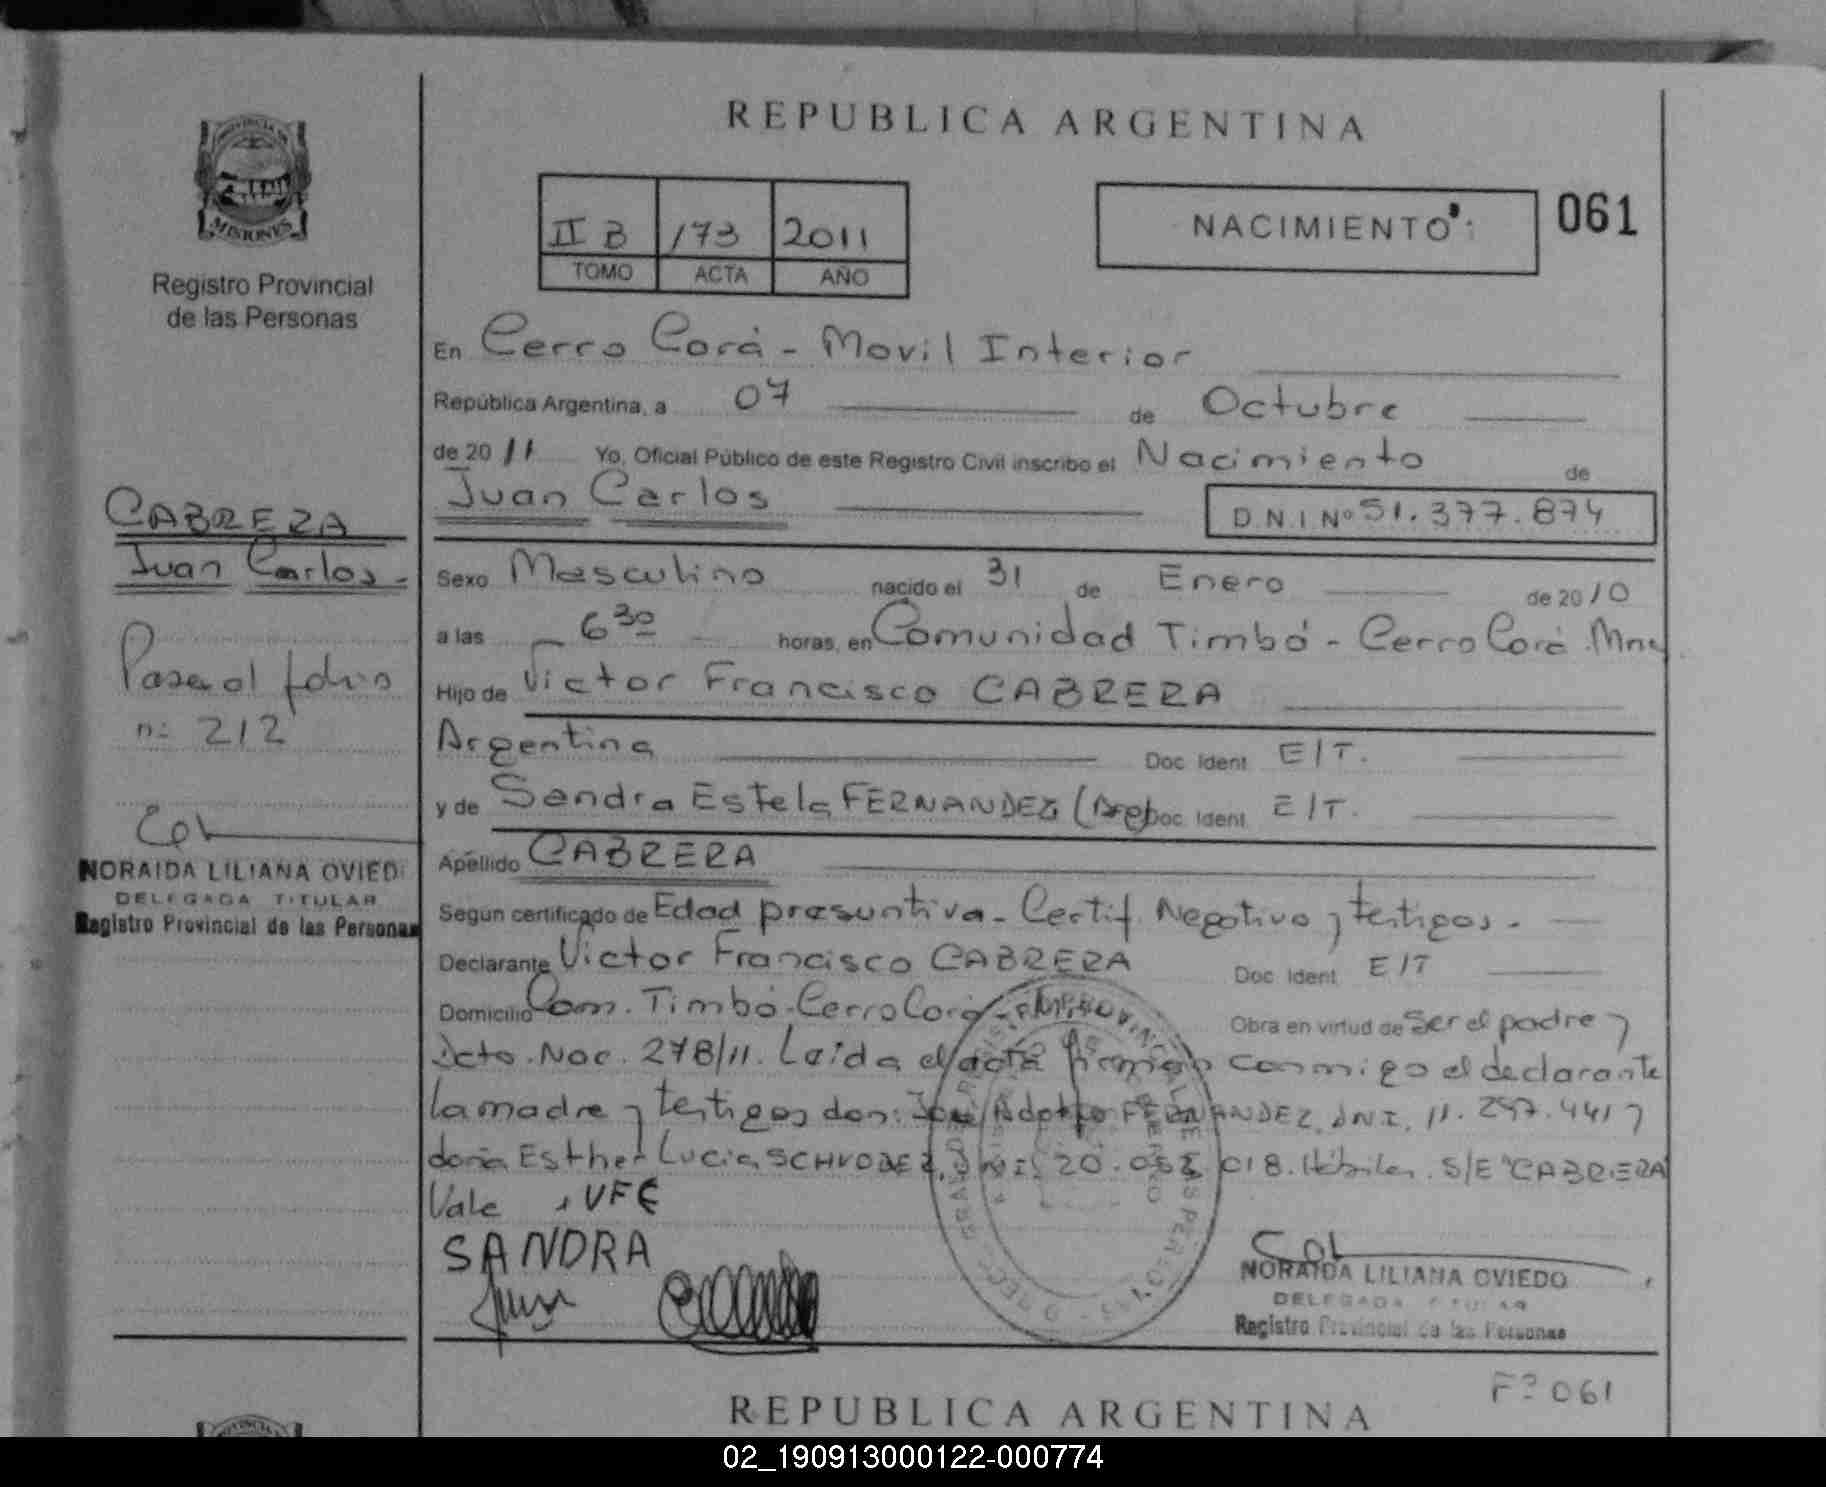 REPUBLICA ARGENTINA
PROVINCIA DE
MISIONES
Registro Provincial
de las Personas
II B 173 2011
TOMO ACTA AÑO
NACIMIENTO
061
En Cerro Corá - Movil Interior
República Argentina, a 07 de Octubre
de 2011 Yo, Oficial Público de este Registro Civil inscribo el Nacimiento de
Juan Carlos
D.N.I Nº 51.377.874
CABRERA
Juan Carlos -
Sexo Masculino nacido el 31 de Enero de 2010
a las 6 30 horas, en Comunidad Timbó - Cerro Corá. Mnes
Pasa al folio
nº 212
Hijo de Victor Francisco CABRERA
Argentina Doc. Ident. E/T.
y de Sandra Estela FERNANDEZ (Arg) Doc. Ident. E/T.
Apellido CABRERA
NORAIDA LILIANA OVIEDO
DELEGADA TITULAR
Registro Provincial de las Personas
Según certificado de Edad presuntiva - Certif. Negativo y testigos.
Declarante Victor Francisco CABRERA Doc. Ident. E/T
Domicilio Com. Timbó - Cerro Corá Obra en virtud de Ser el padre y
Dcto. Nac. 278/11. Leída el acta firman conmigo el declarante
la madre y testigos don: José Adolfo FERNANDEZ, DNI. 11.297.441 y
doña Esther Lucia 20.052.018. Hábiles. S/E "CABRERA"
Vale VFC
SANDRA
NORAIDA LILIANA OVIEDO
DELEGADA TITULAR
Registro Provincial de las Personas
Fº 061
REPUBLICA ARGENTINA
02_190913000122-000774